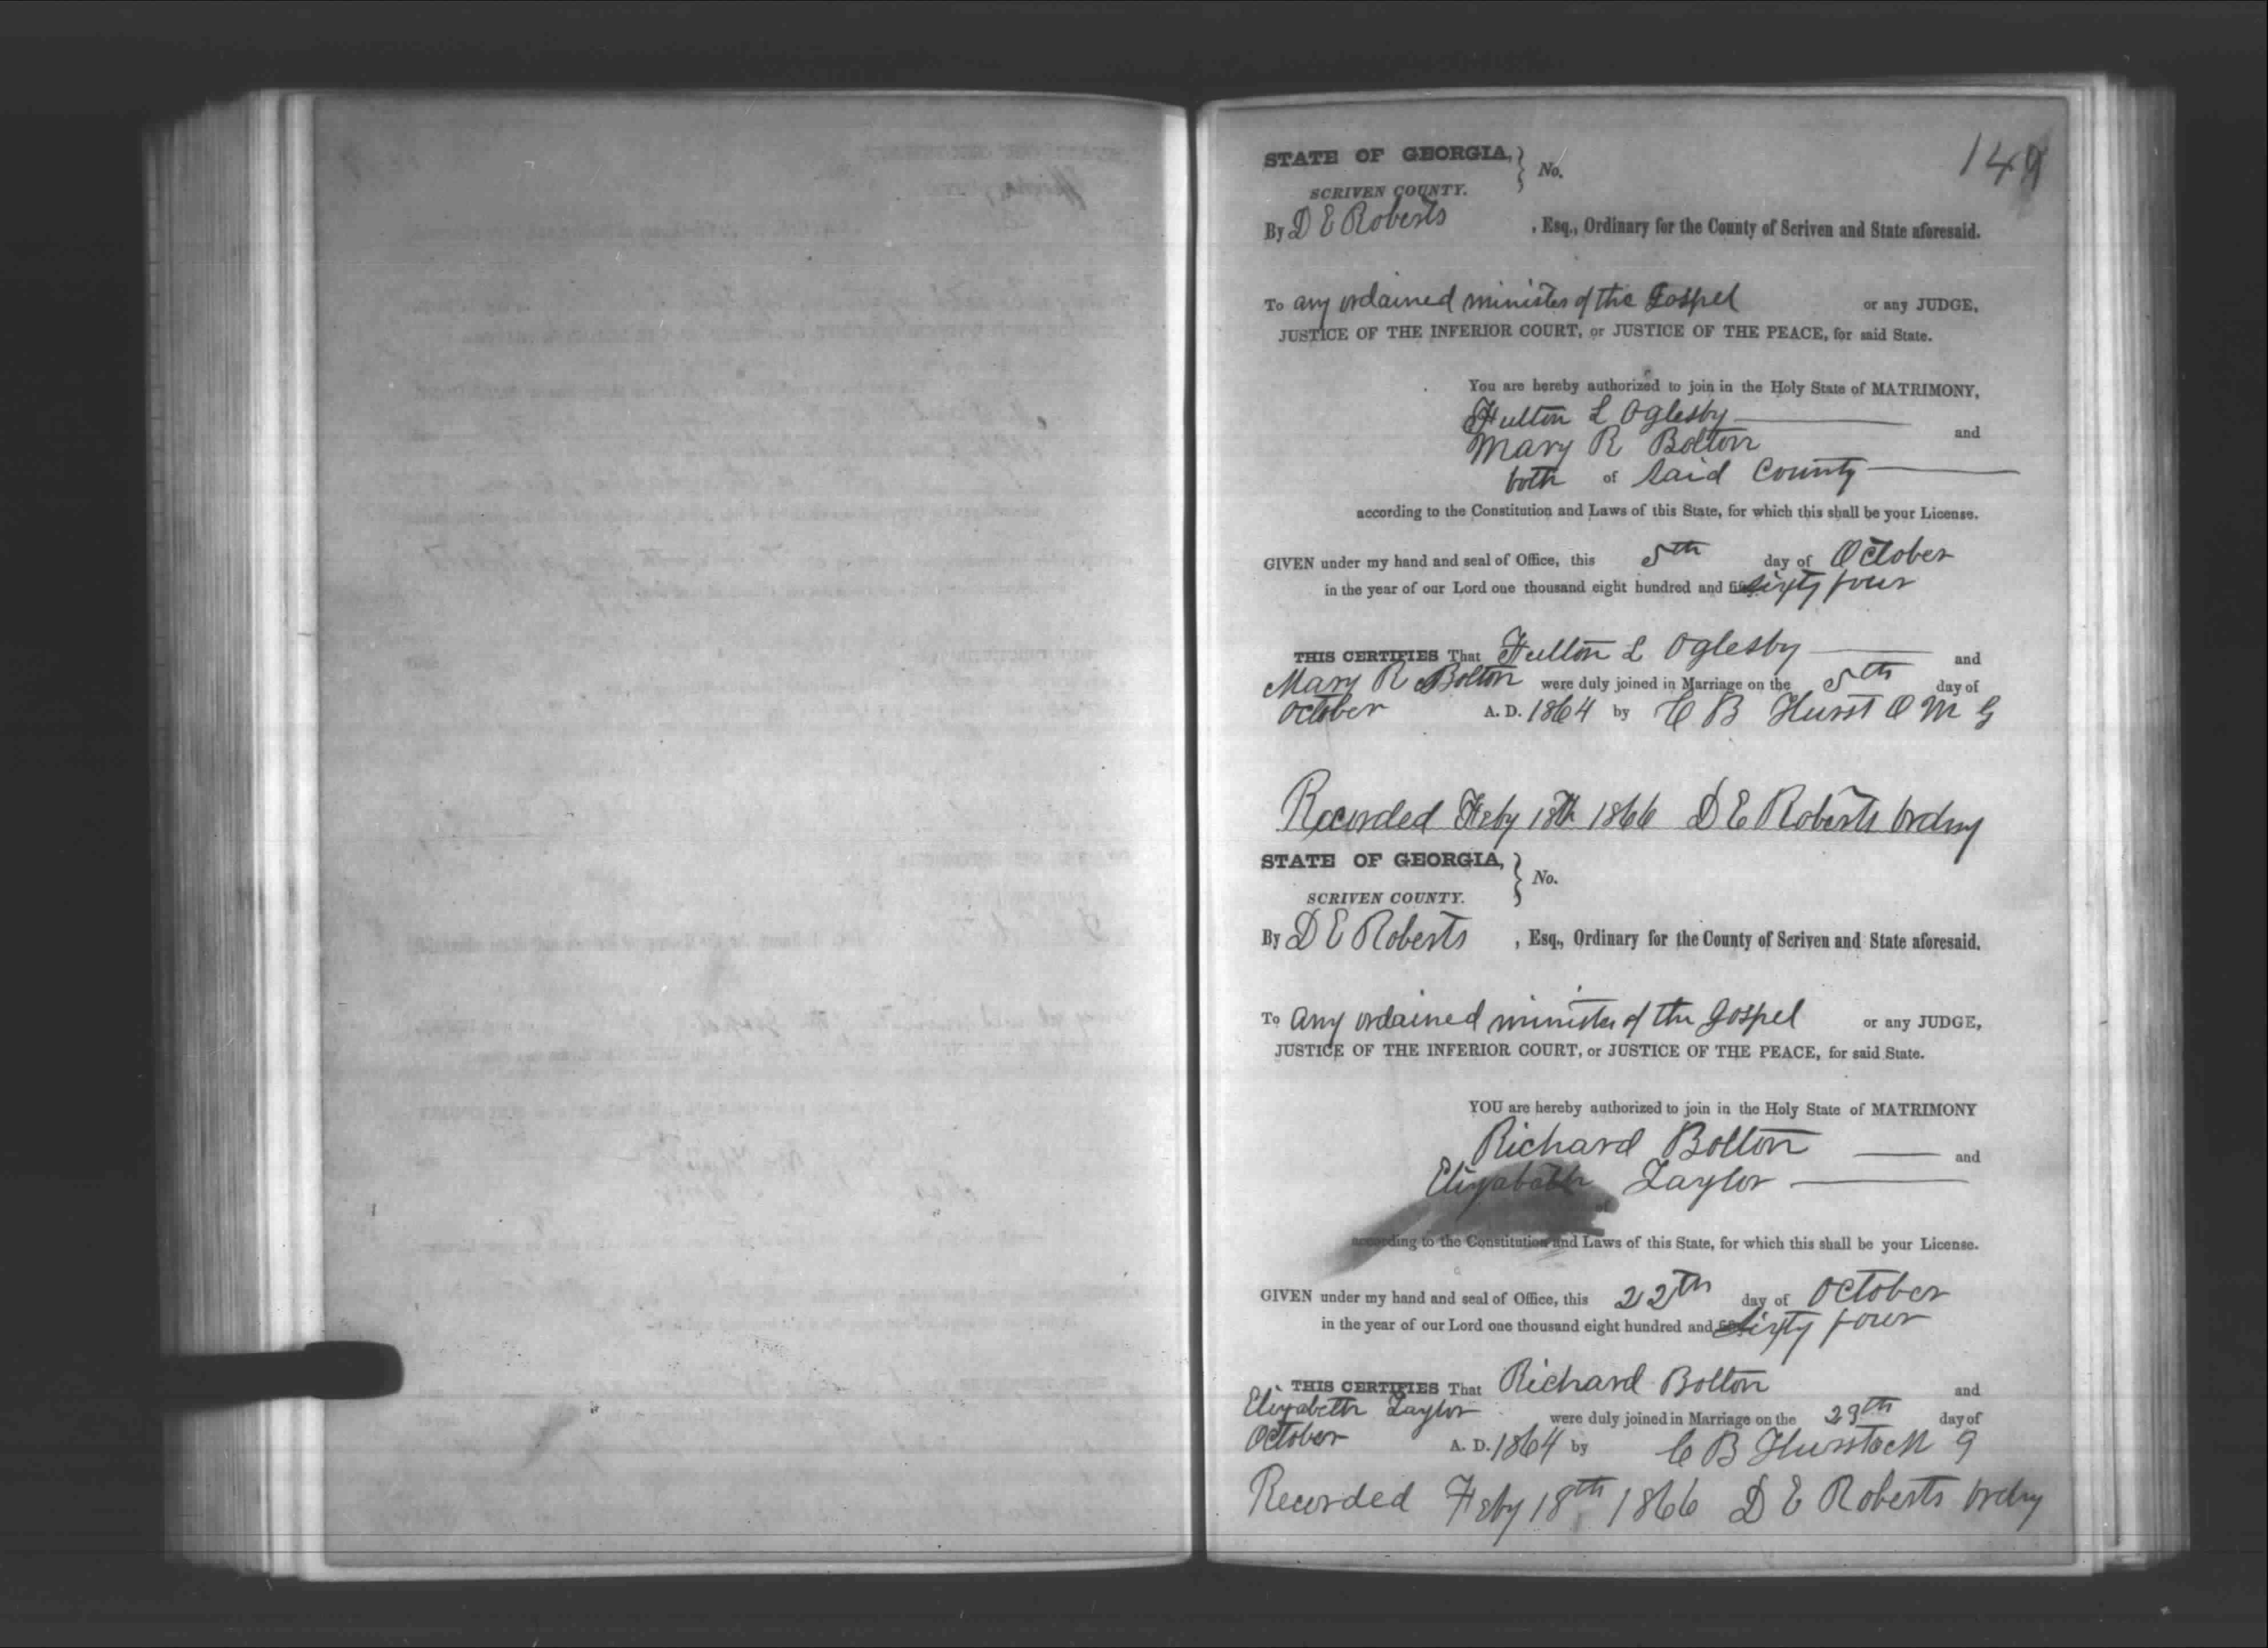 149
STATE OF GEORGIA, } No.
SCRIVEN COUNTY.
By D E Roberts , Esq., Ordinary for the County of Scriven and State aforesaid.
To any ordained minister of the Gospel or any JUDGE,
JUSTICE OF THE INFERIOR COURT, or JUSTICE OF THE PEACE, for said State.
You are hereby authorized to join in the Holy State of MATRIMONY,
Fulton L Oglesby and
Mary R Bolton
both of said County
according to the Constitution and Laws of this State, for which this shall be your License.
GIVEN under my hand and seal of Office, this 5th day of October
in the year of our Lord one thousand eight hundred and sixty four
THIS CERTIFIES That Fulton L Oglesby and
Mary R Bolton were duly joined in Marriage on the 5th day of
October A. D. 1864 by C B Hurst O M G
Recorded Feby 18th 1866 D E Roberts Ordny
STATE OF GEORGIA, } No.
SCRIVEN COUNTY.
By D E Roberts , Esq., Ordinary for the County of Scriven and State aforesaid.
To any ordained minister of the Gospel or any JUDGE,
JUSTICE OF THE INFERIOR COURT, or JUSTICE OF THE PEACE, for said State.
YOU are hereby authorized to join in the Holy State of MATRIMONY
Richard Bolton and
Elizabeth Taylor
of
according to the Constitution and Laws of this State, for which this shall be your License.
GIVEN under my hand and seal of Office, this 22th day of October
in the year of our Lord one thousand eight hundred and sixty four
THIS CERTIFIES That Richard Bolton and
Elizabeth Taylor were duly joined in Marriage on the 29th day of
October A. D. 1864 by C B Hurst O M G
Recorded Feby 18th 1866 D E Roberts Ordny